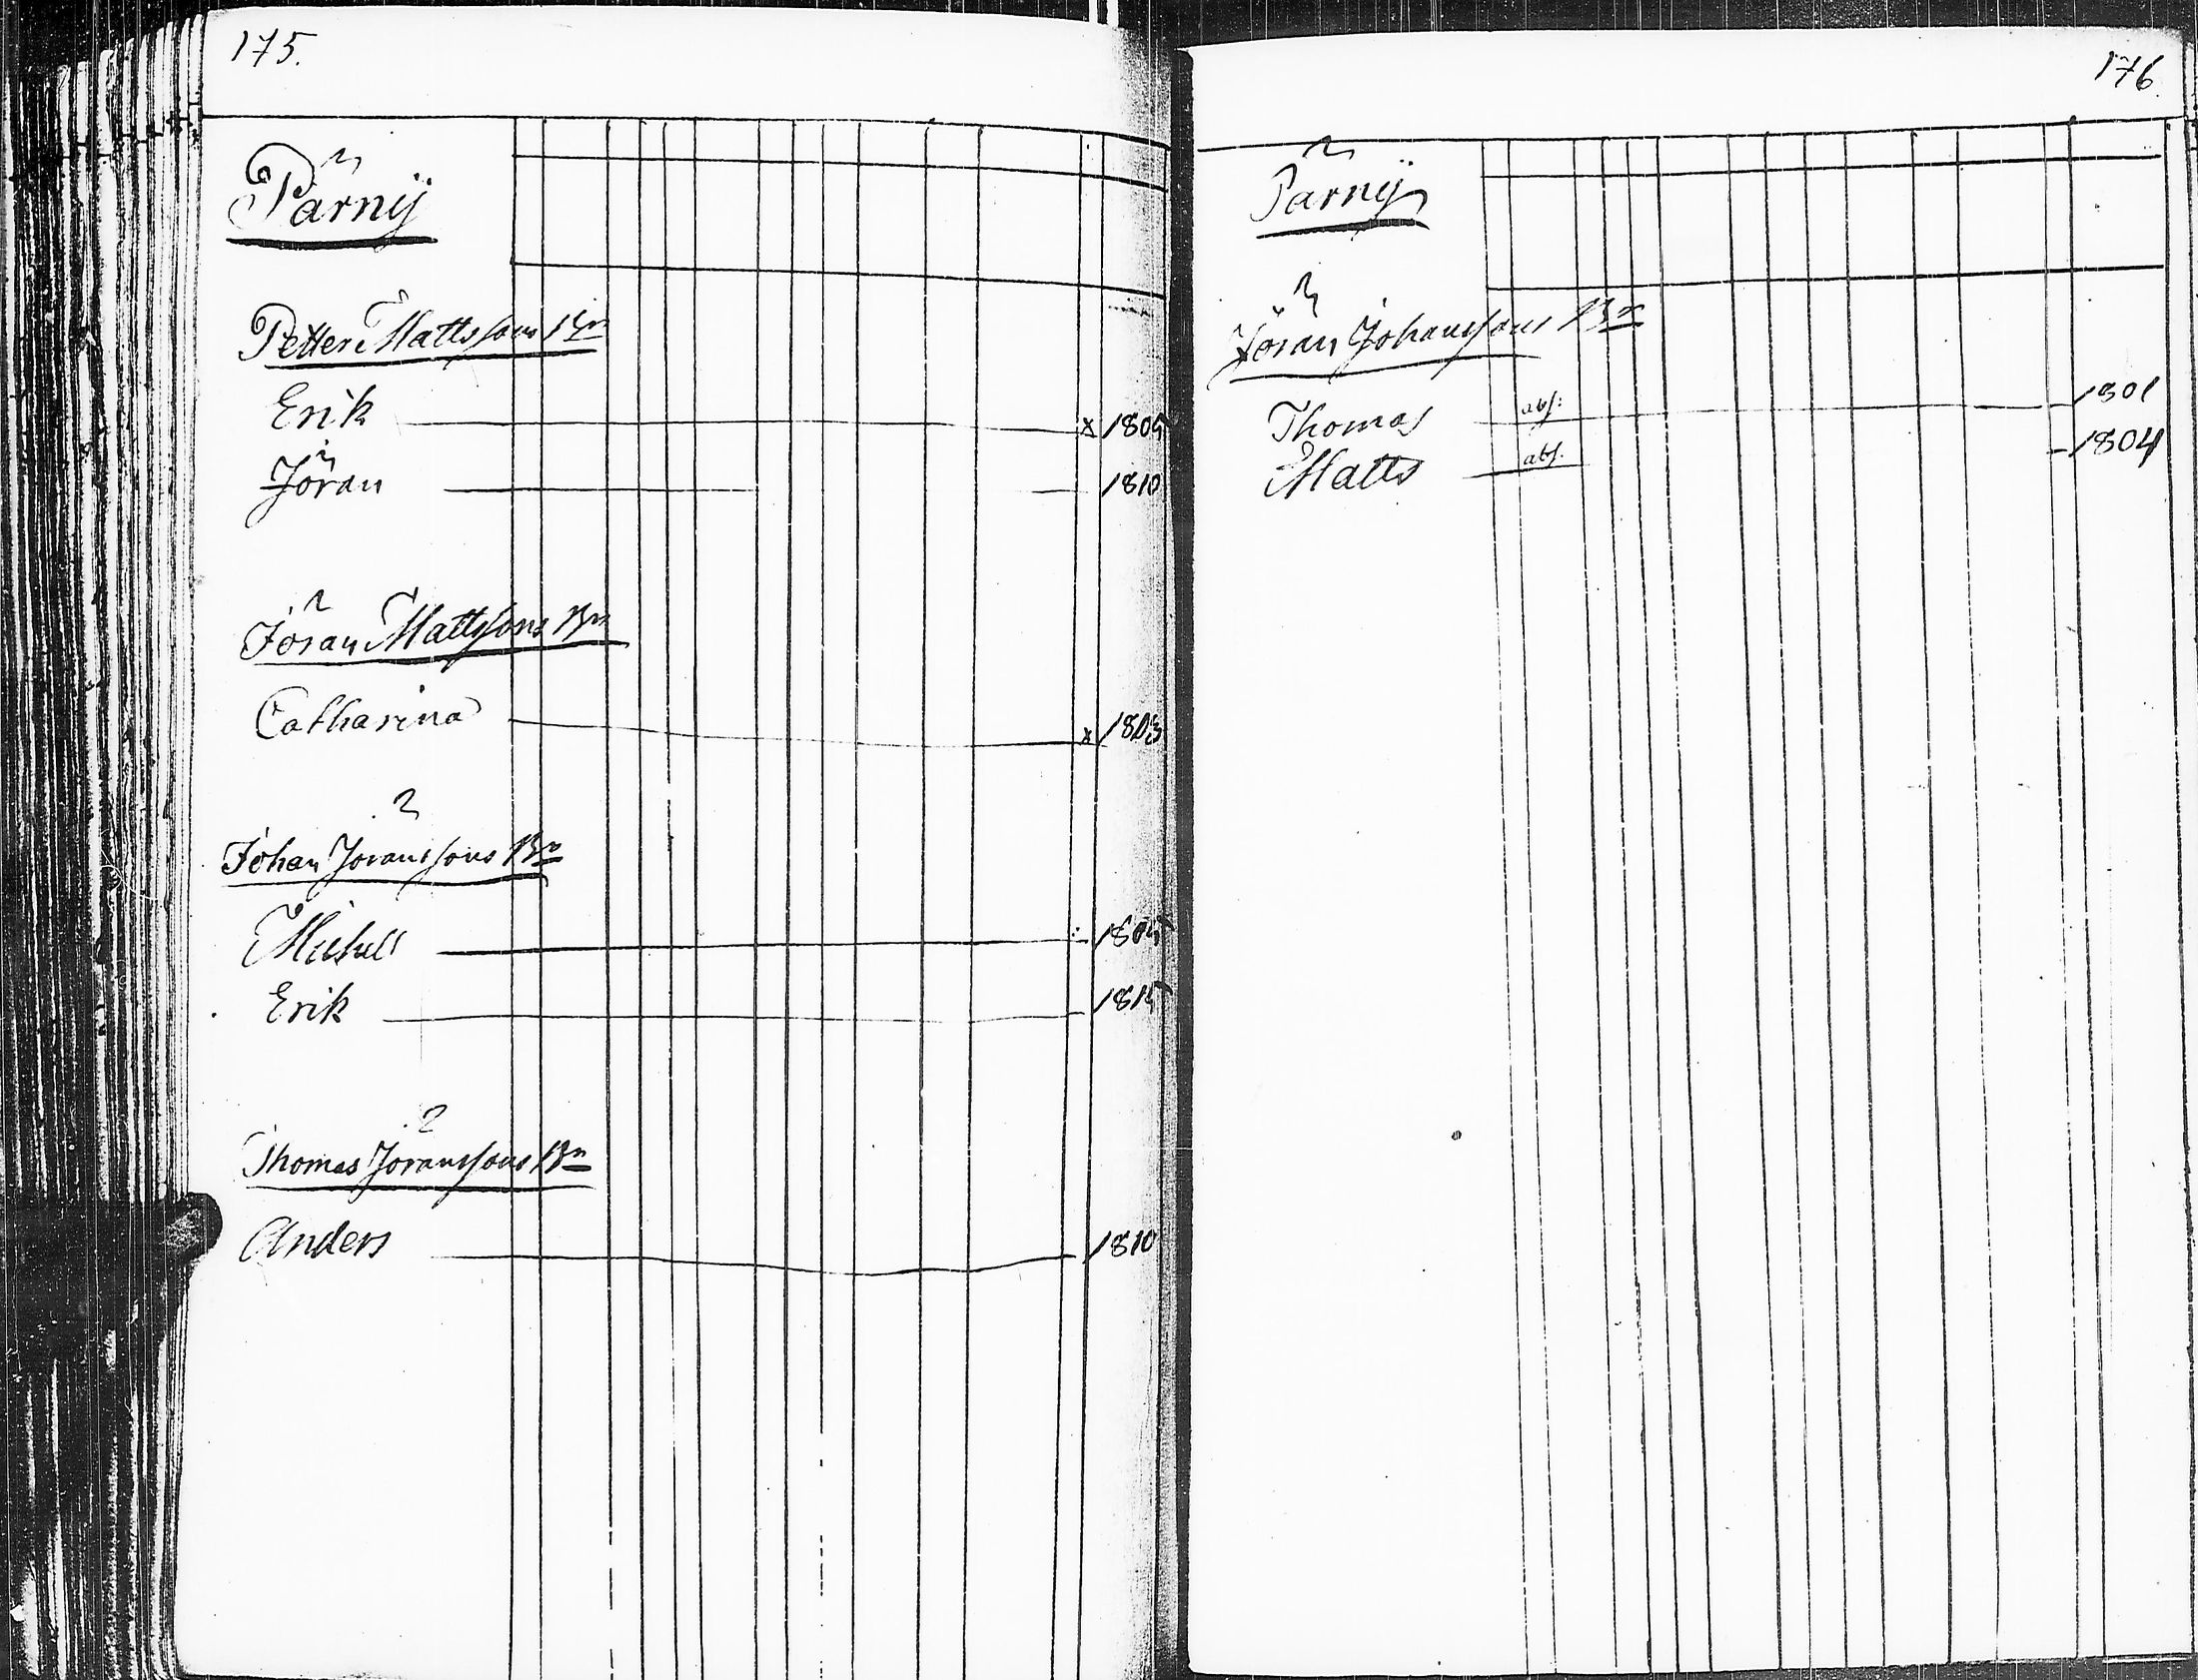 175.
Pärnij
Petter Mattssons Bn
Erik x 1805
Jöran 1810
Jöran Mattssons Bn
Catharina x 1803
Johan Joranssons Bn
Michell 1805
Erik 1815
Thomas Joranssons Bn
Anders 1810
176.
Pärnij
Jöran Johanssons Bn
Thomas abs: 1801
Matts abs. 1804